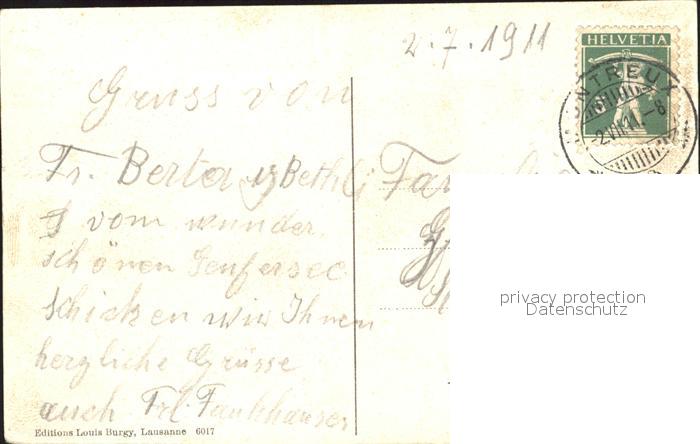 2.7.1911
HELVETIA
MONTREUX
2.VII.11.-8
Gruss von
Fr. Berta u Bethli
vom wunder
schönen Genfersee
schicken wir Ihnen
herzliche Grüsse
auch Frl. Fankhauser
Editions Louis Burgy, Lausanne 6017
Fa
privacy protection
Datenschutz